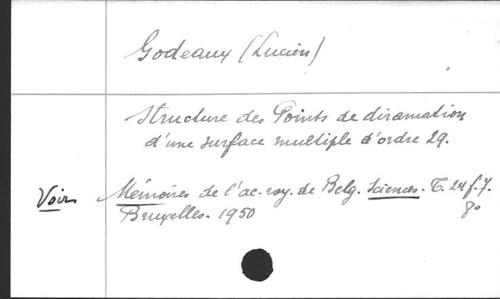 Godeaux (Lucien)
Structure des Points de diramation
d'une surface multiple d'ordre 29.
Voir Mémoires de l'ac. roy. de Belg. Sciences. T. 24 f. 7.
Bruxelles. 1950 8º